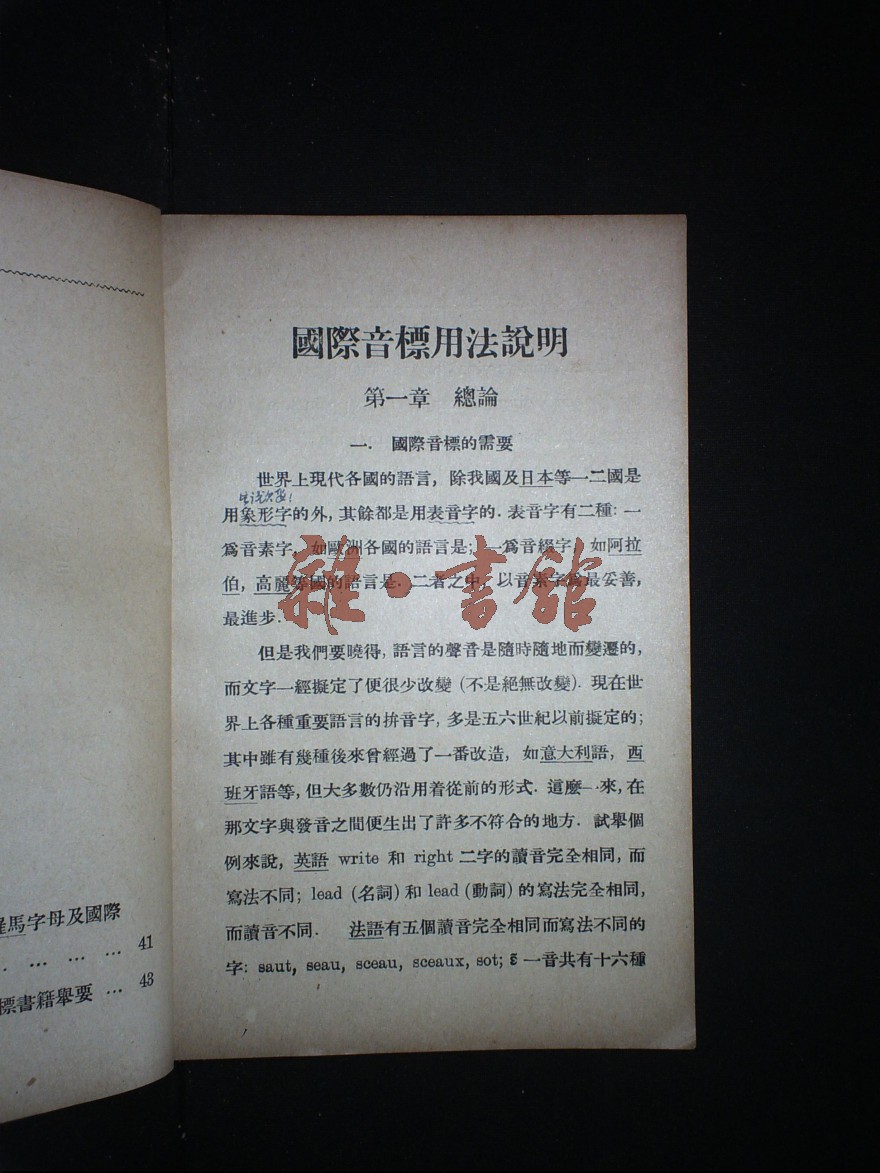 羅馬字母及國際
… … … 41
標書籍舉要 … 43
國際音標用法說明
第一章 總論
一. 國際音標的需要
世界上現代各國的語言, 除我國及日本等一二國是
用象形字的外, 其餘都是用表音字的. 表音字有二種: 一
爲音素字, 如歐洲各國的語言是; 一爲音綴字, 如阿拉
伯, 高麗等國的語言是. 二者之中, 以音素字爲最妥善,
最進步.
但是我們要曉得, 語言的聲音是隨時隨地而變遷的,
而文字一經擬定了便很少改變 (不是絕無改變). 現在世
界上各種重要語言的拚音字, 多是五六世紀以前擬定的;
其中雖有幾種後來曾經過了一番改造, 如意大利語, 西
班牙語等, 但大多數仍沿用着從前的形式. 這麼一來, 在
那文字與發音之間便生出了許多不符合的地方. 試舉個
例來說, 英語 write 和 right 二字的讀音完全相同, 而
寫法不同; lead (名詞) 和 lead (動詞) 的寫法完全相同,
而讀音不同. 法語有五個讀音完全相同而寫法不同的
字: saut, seau, sceau, sceaux, sot; 一音共有十六種
雜·書館